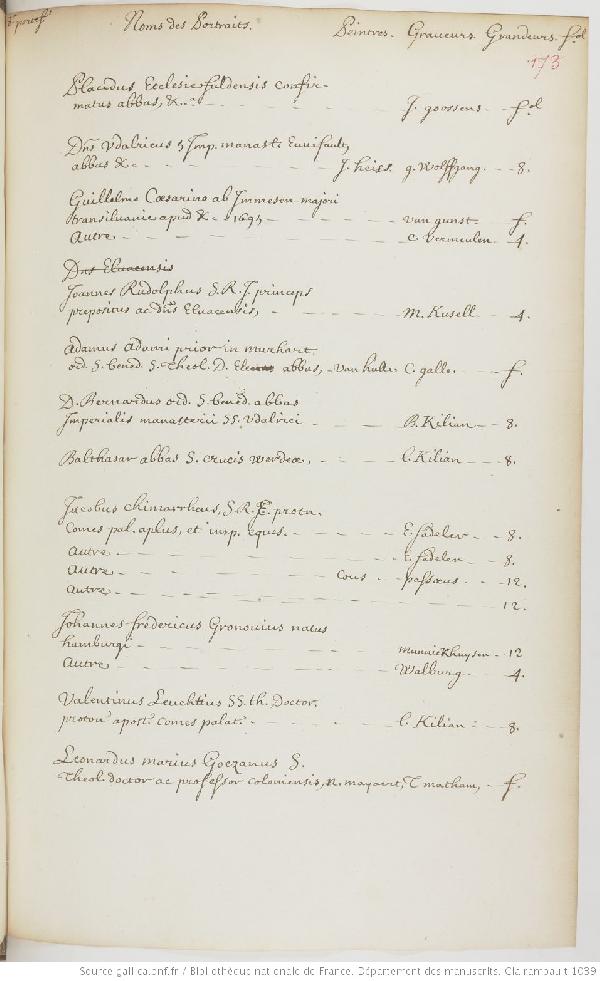 Noms des Portraits. Peintres. Graveurs. Grandeurs. fol
173
Placidus Ecclesie fuldensis confir-
matus abbas, &c. J. goossens fol
Dns Udalricus Imp. manast.
abbas &c. J. heiss. g. Wolffgang. 8.
Guillelmo Cæsarino ab Immesen majori
transiluanie apud &c. 1695 van gunst f.
Autre c. Vermeulen. 4.
Dns Eluacensis
Joannes Rudolphus S. R. J. princeps
prepositus ac dns Eluacensis, M. Kusell. 4.
Adamus Adami prior in murhart
ord. S. bened. S. Theol. D. abbas, van hulle C. galle. f.
D. Bernardus ord. S. bened. abbas
Imperialis manasterii SS. Udalrici B. Kilian 8.
Balthasar abbas S. crucis werdeæ, l. Kilian 8.
Jacobus chimarrheus, S. R. E. proto.
comes pal. aplus, et imp. eques. E. sadeler 8.
Autre E. sadeler 8.
Autre Cous passæus 12.
Autre 12.
Johannes fredericus Gronouius natus
hamburgi munnickhuysen 12
Autre Walburg 4.
Valentinus Leuchtius SS. th. Doctor.
proton apost. comes palat. l. Kilian 8.
Leonardus marius Goezanus S.
Theol. doctor ac professor coloniensis, n. moyaert, T. matham, f.
Source gallica.bnf.fr / Bibliothèque nationale de France. Département des manuscrits. Clairambault 1039